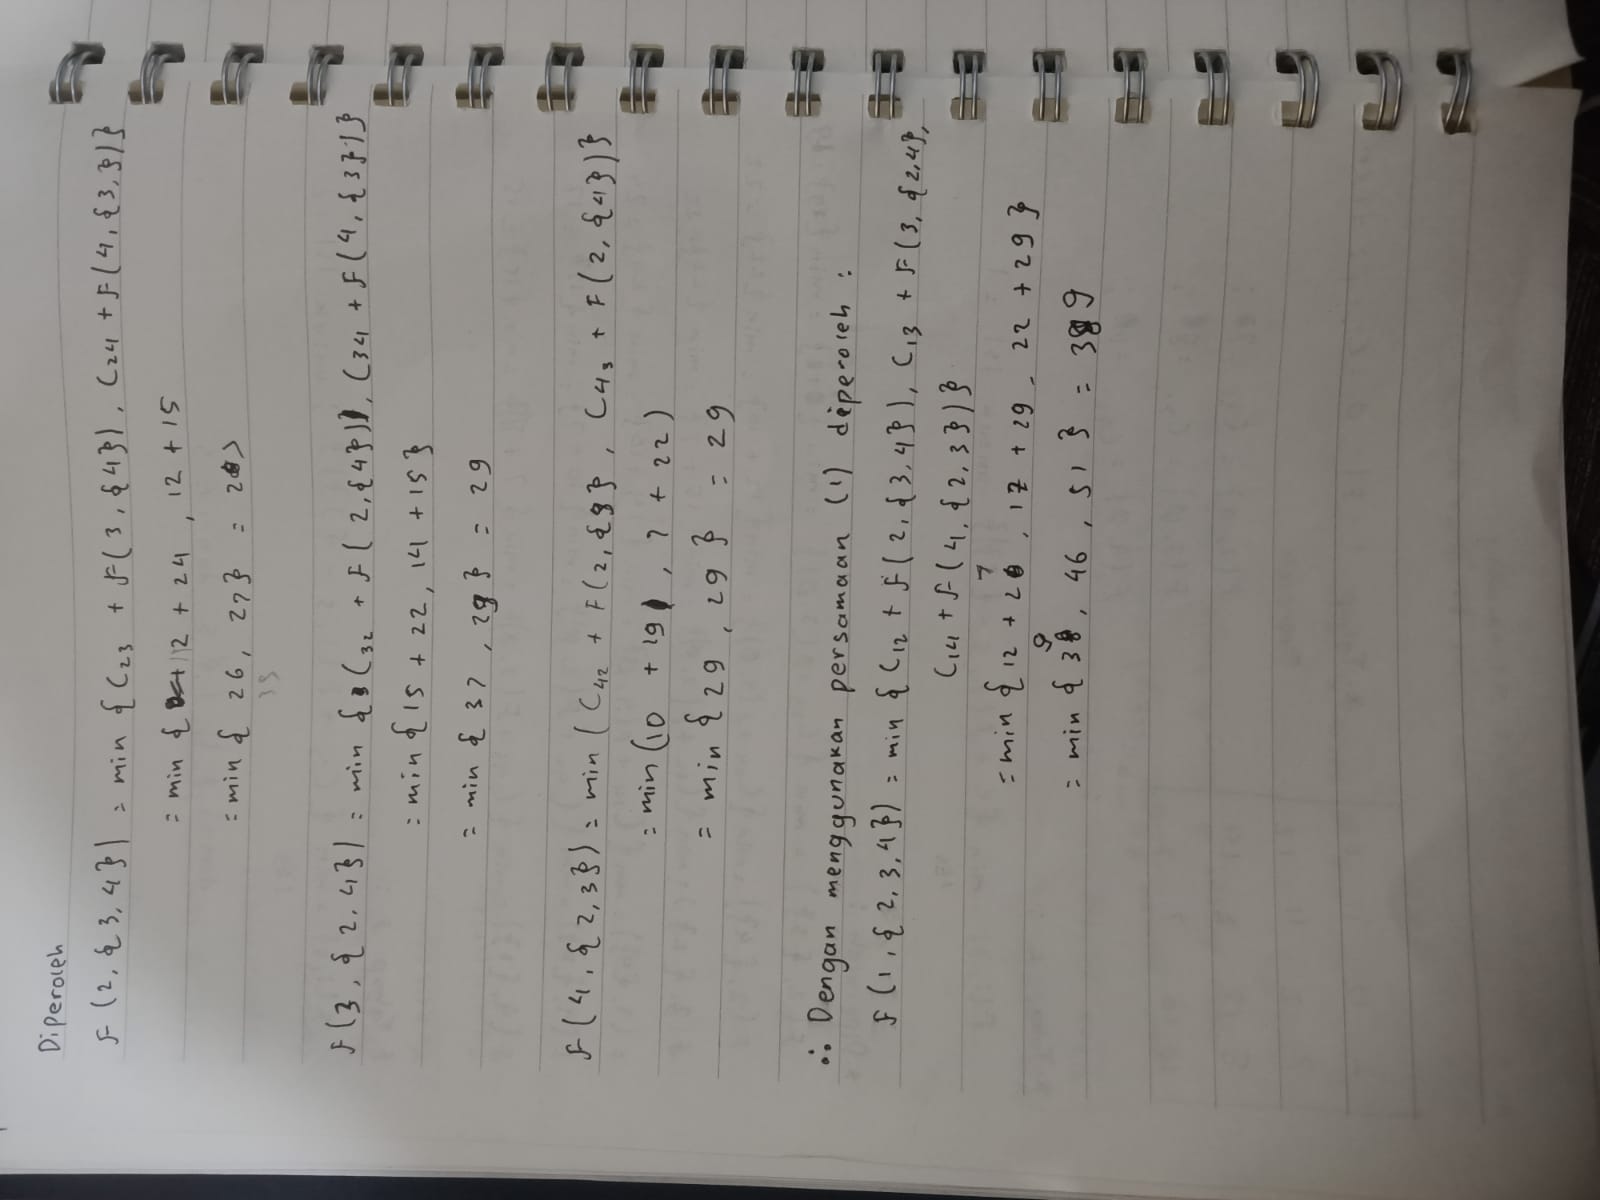 Diperoleh
F(2, {3, 4}) = min {C23 + F(3, {4}), C24 + F(4, {3,})}
= min { 12 + 24, 12 + 15
= min { 26, 27} = 27
35
F(3, {2, 4}) = min { C32 + F(2, {4}), C34 + F(4, {3})}
= min {15 + 22, 14 + 15}
= min { 37, 29 } = 29
F(4, {2,3}) = min ( C42 + F(2, {3}, C43 + F(2, {4})}
= min (10 + 19, 7 + 22)
= min {29, 29 } = 29
∴ Dengan menggunakan persamaan (1) diperoleh :
F(1, {2, 3, 4}) = min { C12 + F(2, {3, 4}), C13 + F(3, {2,4},
C14 + F(4, {2, 3})}
= min {12 + 27, 17 + 29, 22 + 29}
= min { 39, 46, 51 } = 39